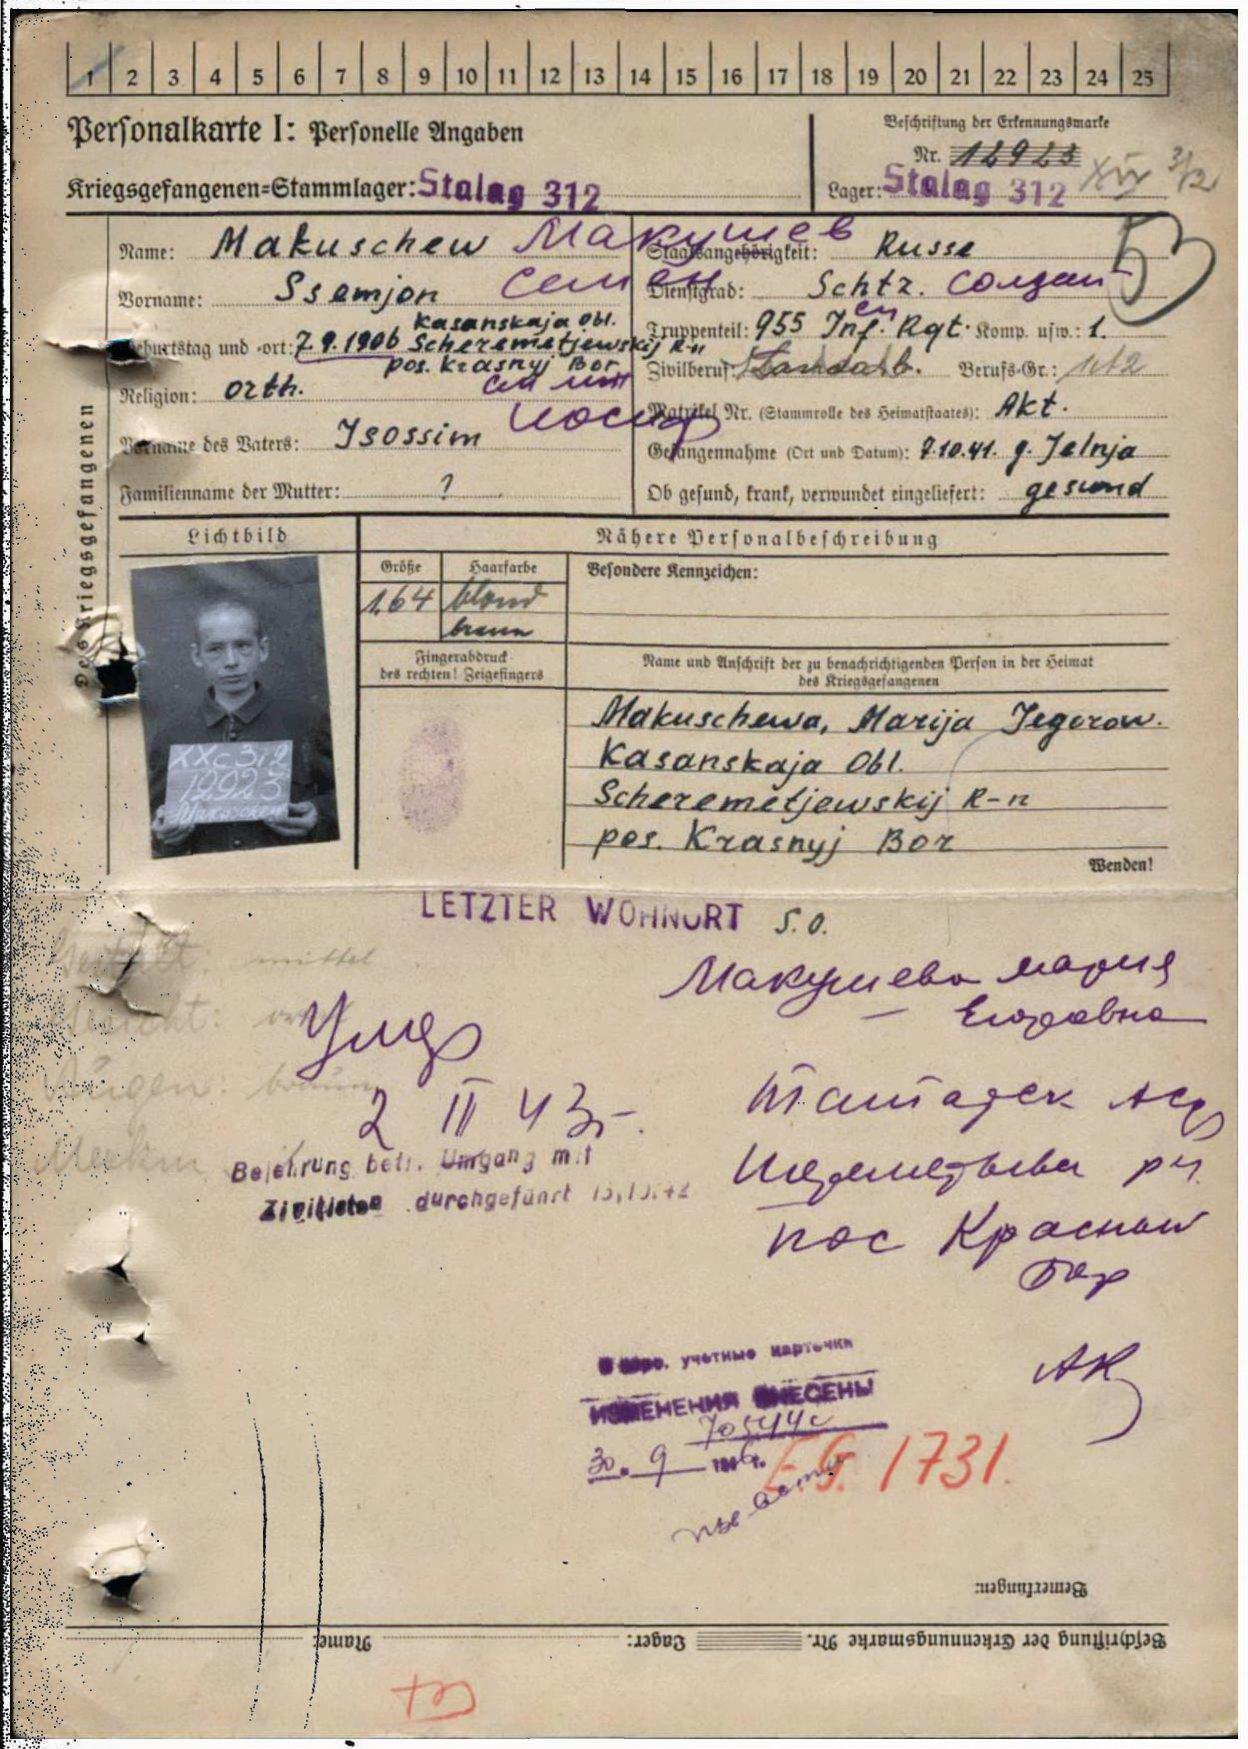 1 2 3 4 5 6 7 8 9 10 11 12 13 14 15 16 17 18 19 20 21 22 23 24 25
Personalkarte I: Personelle Angaben
Kriegsgefangenen=Stammlager: Stalag 312
Beschriftung der Erkennungsmarke
Nr. 12923
Lager: Stalag 312
53
Name: Makuschew Макушев
Vorname: Ssemjon Семен
Kasanskaja Obl.
Geburtstag und -ort: 7.9.1906 Scheremetjewskij R-n
pos. Krasnyj Bor
Religion: orth.
Vorname des Vaters: Isossim
Familienname der Mutter: ?
Staatsangehörigkeit: Russe
Dienstgrad: Schtz. солдат
Truppenteil: 955 Inf. Rgt. Komp. usw.: 1.
Zivilberuf: Berufs-Gr.:
Matrikel Nr. (Stammrolle des Heimatstaates): Akt.
Gefangennahme (Ort und Datum): 7.10.41. g. Jelnja
Ob gesund, krank, verwundet eingeliefert: gesund
Des Kriegsgefangenen
Lichtbild
Nähere Personalbeschreibung
Größe
Haarfarbe
Besondere Kennzeichen:
1.64
blond
braun
Fingerabdruck
des rechten! Zeigefingers
Name und Anschrift der zu benachrichtigenden Person in der Heimat
des Kriegsgefangenen
XXc 312
12923
Makuschew
Makuschewa, Marija Jegorow.
Kasanskaja Obl.
Scheremetjewskij R-n
pos. Krasnyj Bor
Wenden!
LETZTER WOHNORT S.O.
Gestalt: mittel
Gesicht:
Augen: braun
Merkm
Умер
2 II 43
Макушева Мария
Егоровна
Татарск АСср
Шереметьева рн.
пос Красный
Бор
Belehrung betr. Umgang mit
Zivilisten durchgeführt
учетные карточки
ИЗМЕНЕНИЯ ВНЕСЕНЫ
30. 9
1731.
АК
Bemerkungen:
Beschriftung der Erkennungsmarke Nr. Lager: Name: